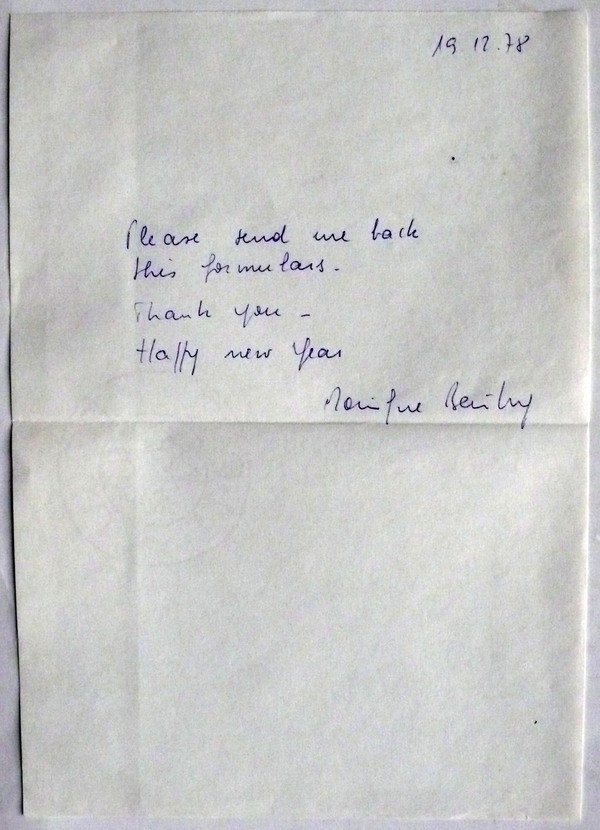 19 12.78
Please send me back
this formulars.
Thank you -
Happy new Year
Monique